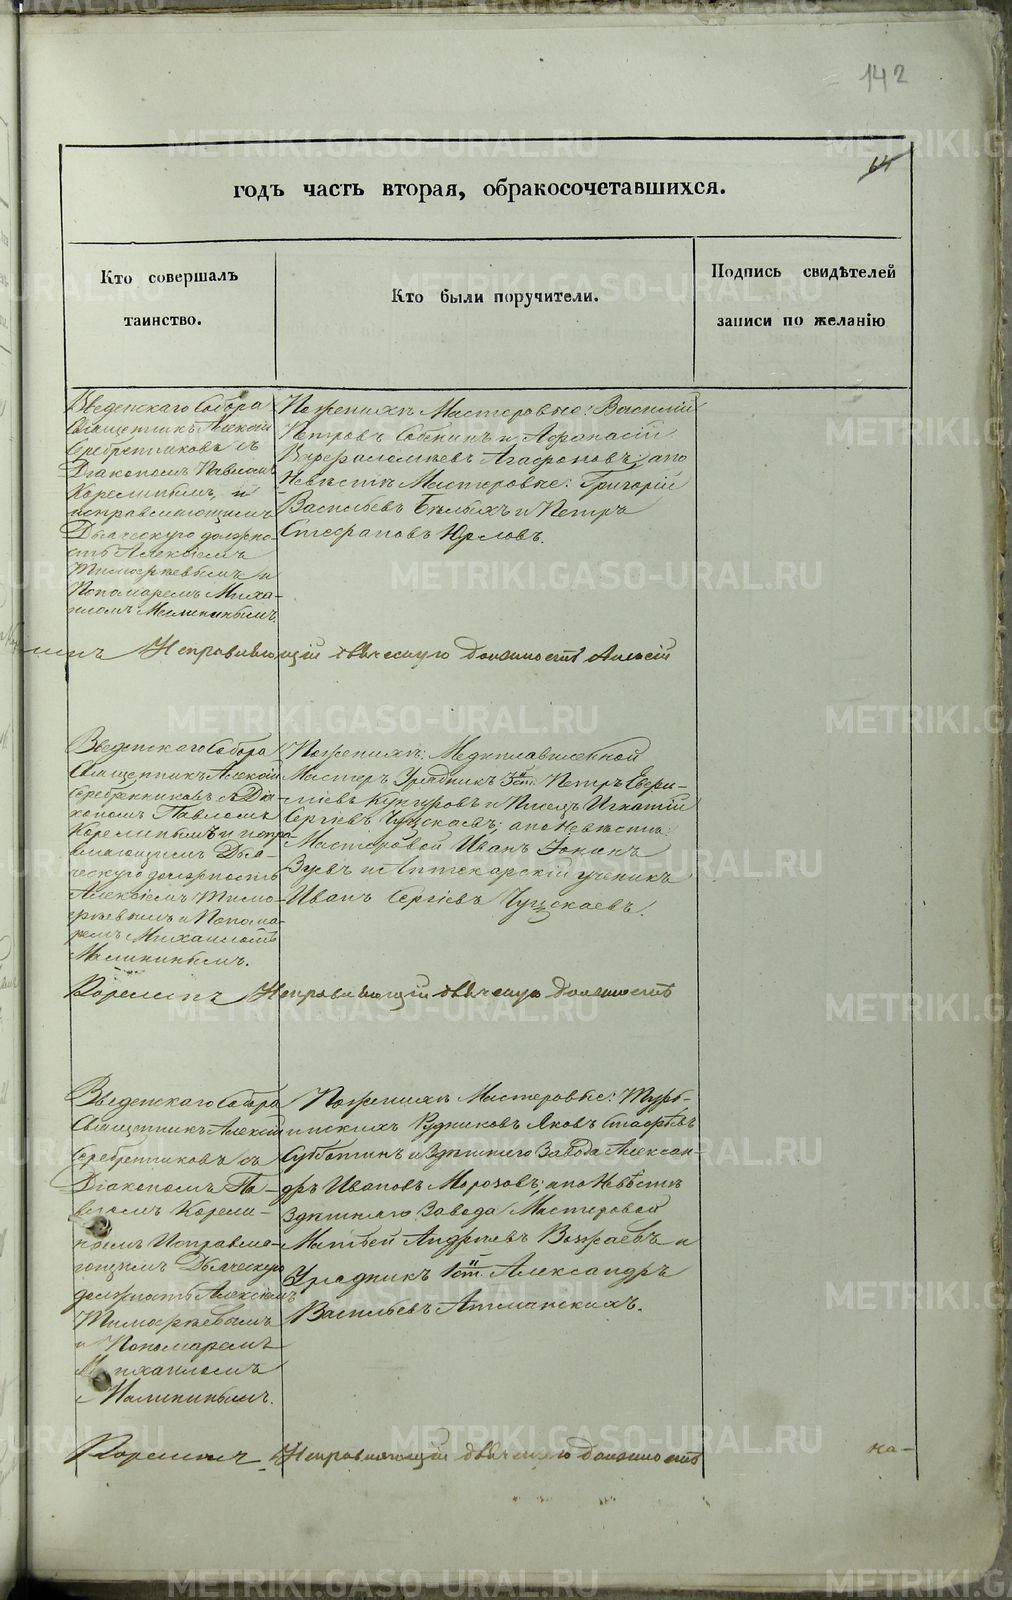 142
64
годъ часть вторая, обракосочетавшихся.
Кто совершалъ
таинство.
Кто были поручители.
Подпись свидѣтелей
записи по желанію
Введенскаго Собора
Священникъ Алексій
Серебренниковъ съ
Діакономъ Павломъ
Корелинымъ и
исправляющимъ
Дьяческую должно-
сть Алексіемъ
Тимофѣевымъ и
Пономаремъ Миха-
иломъ Малининымъ.
По женихѣ Мастеровые: Василій
Петровъ Собенинъ и Афанасій
Варфаломѣевъ Агафоновъ; а по
Невѣстѣ Мастеровые: Григорій
Васильевъ Бѣлыхъ и Петръ
Стефановъ Юрловъ.
Исправляющій дьяческую должность Алексій
Введенскаго Собора
Священникъ Алексій
Серебренниковъ съ Діа-
кономъ Павломъ
Корелинымъ и испра-
вляющимъ Дья-
ческую должность
Алексіемъ Тимо-
фѣевымъ и Понома-
ремъ Михаиломъ
Малининымъ.
По женихѣ: Медиплавиленной
Мастеръ Урядникъ 3й ст. Петръ Евфи-
міевъ Кунгуровъ и Писецъ Игнатій
Сергіевъ Чущкаевъ; а по Невѣстѣ:
Мастеровой Иванъ Іонинъ
Зуевъ и Аптекарскій ученикъ
Иванъ Сергіевъ Чущкаевъ.
Корелинъ Исправляющій дьяческую должность
Введенскаго Собора
Священникъ Алексій
Серебренниковъ съ
Діакономъ Па-
вломъ Корели-
нымъ Исправля-
ющимъ Дьяческую
должность Алексіемъ
Тимофѣевымъ
и Пономаремъ
Михаиломъ
Малининымъ.
По женихѣ Мастеровые: Турь-
инскихъ Рудниковъ Яковъ
Субботинъ и Здѣшняго Завода Алексан-
дръ Ивановъ Морозовъ; а по Невѣстѣ
Здѣшняго Завода Мастеровой
Матвей Андрѣевъ и
Урядникъ 1й ст. Александръ
Васильевъ Атманскихъ.
Корелинъ Исправляющій дьяческую должность
на-